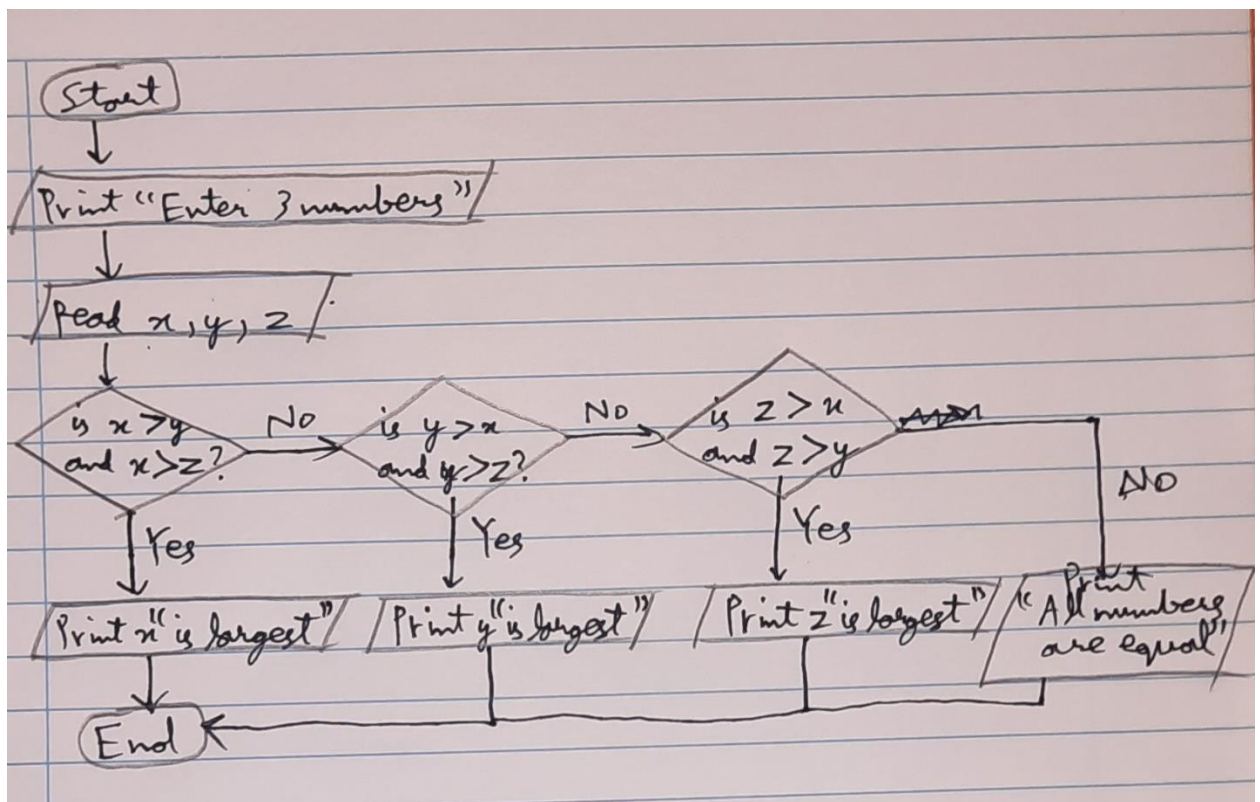 Start
Print "Enter 3 numbers"
Read x, y, z
is x > y
and x > z?
No
Yes
is y > x
and y > z?
No
Yes
is z > x
and z > y
Yes
No
Print x "is largest"
Print y "is largest"
Print z "is largest"
Print
"All numbers
are equal"
End